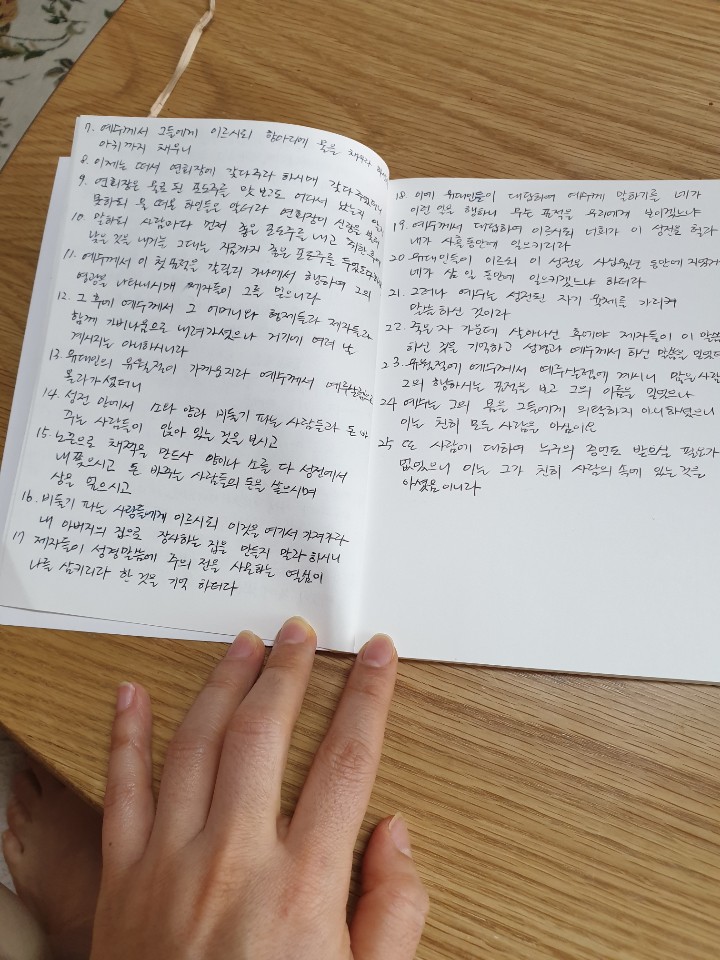 7. 예수께서 그들에게 이르시되 항아리에 물을 채우라 하신즉
아귀까지 채우니
8. 이제는 떠서 연회장에 갖다주라 하시매 갖다 주었더니
9. 연회장은 물로 된 포도주를 맛보고도 어디서 났는지 알지
못하되 물 떠온 하인들은 알더라 연회장이 신랑을 불러
10. 말하되 사람마다 먼저 좋은 포도주를 내고 취한 후에
낮은 것을 내거늘 그대는 지금까지 좋은 포도주를 두었도다 하니라
11. 예수께서 이 첫 표적을 갈릴리 가나에서 행하여 그의
영광을 나타내시매 제자들이 그를 믿으니라
12. 그 후에 예수께서 그 어머니와 형제들과 제자들과
함께 가버나움으로 내려가셨으나 거기에 여러 날
계시지는 아니하시니라
13. 유대인의 유월절이 가까운지라 예수께서 예루살렘으로
올라가셨더니
14. 성전 안에서 소와 양과 비둘기 파는 사람들과 돈 바
주는 사람들이 앉아 있는 것을 보시고
15. 노끈으로 채찍을 만드사 양이나 소를 다 성전에서
내쫓으시고 돈 바꾸는 사람들의 돈을 쏟으시며
상을 엎으시고
16. 비둘기 파는 사람들에게 이르시되 이것을 여기서 가져가라
내 아버지의 집으로 장사하는 집을 만들지 말라 하시니
17 제자들이 성경말씀에 주의 전을 사모하는 열심이
나를 삼키리라 한 것을 기억 하더라
18. 이에 유대인들이 대답하여 예수께 말하기를 네가
이런 일을 행하니 무슨 표적을 우리에게 보이겠느냐
19. 예수께서 대답하여 이르시되 너희가 이 성전을 헐라
내가 사흘동안에 일으키리라
20 유대인들이 이르되 이 성전은 사십육년 동안에 지었거
네가 삼 일 동안에 일으키겠느냐 하더라
21. 그러나 예수는 성전된 자기 육체를 가리켜
말씀 하신 것이라
22. 죽은 자 가운데 살아나신 후에야 제자들이 이 말씀
하신 것을 기억하고 성경과 예수께서 하신 말씀을 믿었더
23. 유월절에 예수께서 예루살렘에 계시니 많은 사람
그의 행하시는 표적을 보고 그의 이름을 믿었으나
24 예수는 그의 몸을 그들에게 의탁하지 아니하셨으니
이는 친히 모든 사람을 아심이요
25 또 사람에 대하여 누구의 증언도 받으실 필요가
없었으니 이는 그가 친히 사람의 속에 있는 것을
아셨음 이니라